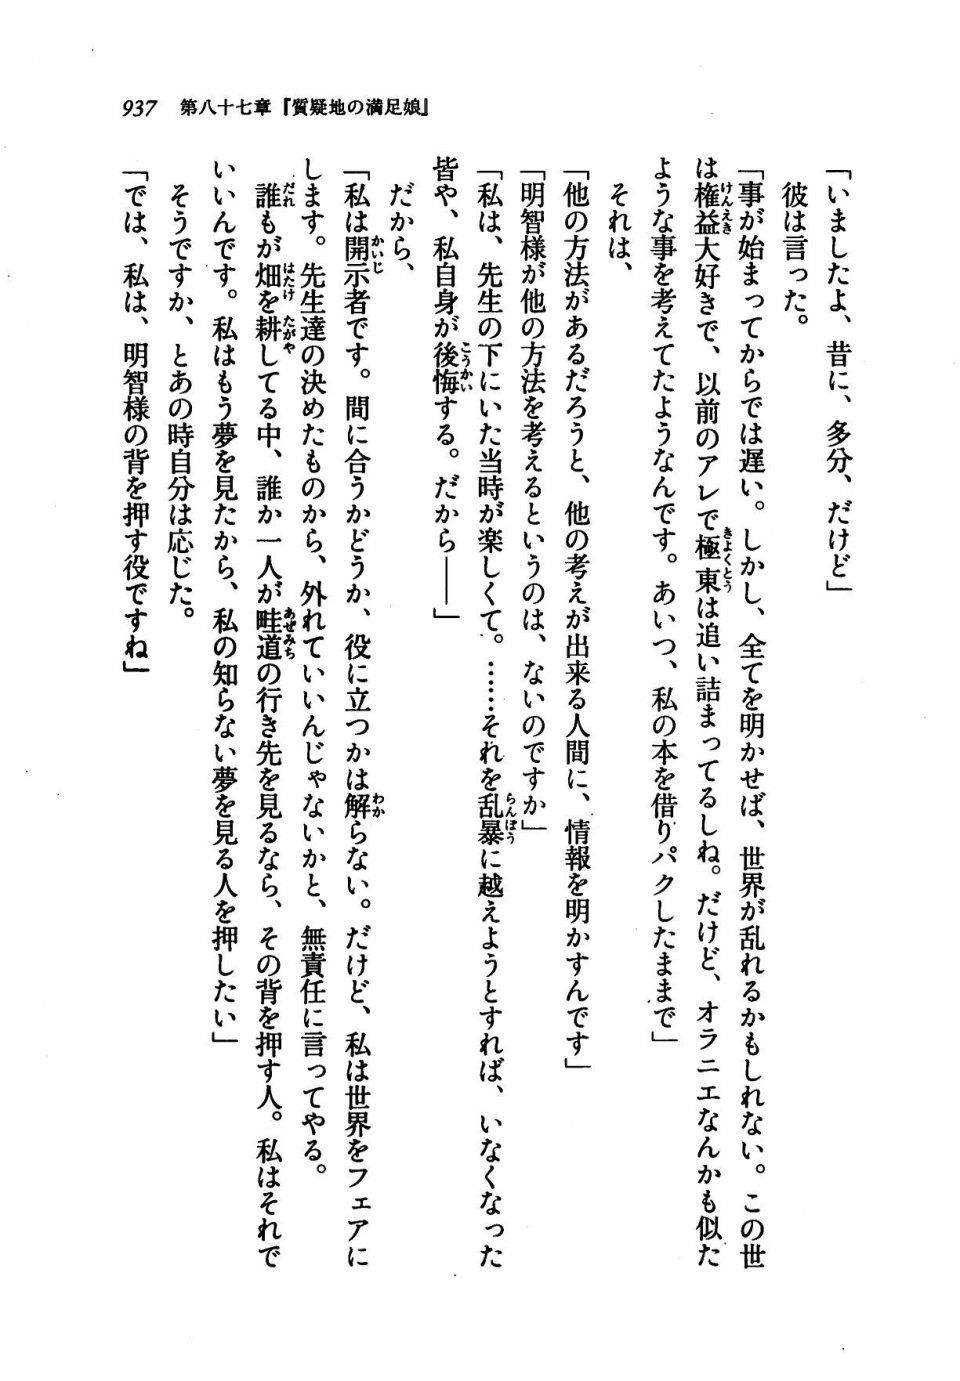 937 第八十七章『質疑地の満足娘』
「いましたよ、昔に、多分、だけど」
彼は言った。
「事が始まってからでは遅い。しかし、全てを明かせば、世界が乱れるかもしれない。この世
は権益大好きで、以前のアレで極東は追い詰まってるしね。だけど、オラニエなんかも似た
ような事を考えてたようなんです。あいつ、私の本を借りパクしたままで」
それは、
「他の方法があるだろうと、他の考えが出来る人間に、情報を明かすんです」
「明智様が他の方法を考えるというのは、ないのですか」
「私は、先生の下にいた当時が楽しくて。……それを乱暴に越えようとすれば、いなくなった
皆や、私自身が後悔する。だから――」
だから、
「私は開示者です。間に合うかどうか、役に立つかは解らない。だけど、私は世界をフェアに
します。先生達の決めたものから、外れていいんじゃないかと、無責任に言ってやる。
誰もが畑を耕してる中、誰か一人が畦道の行き先を見るなら、その背を押す人。私はそれで
いいんです。私はもう夢を見たから、私の知らない夢を見る人を押したい」
そうですか、とあの時自分は応じた。
「では、私は、明智様の背を押す役ですね」